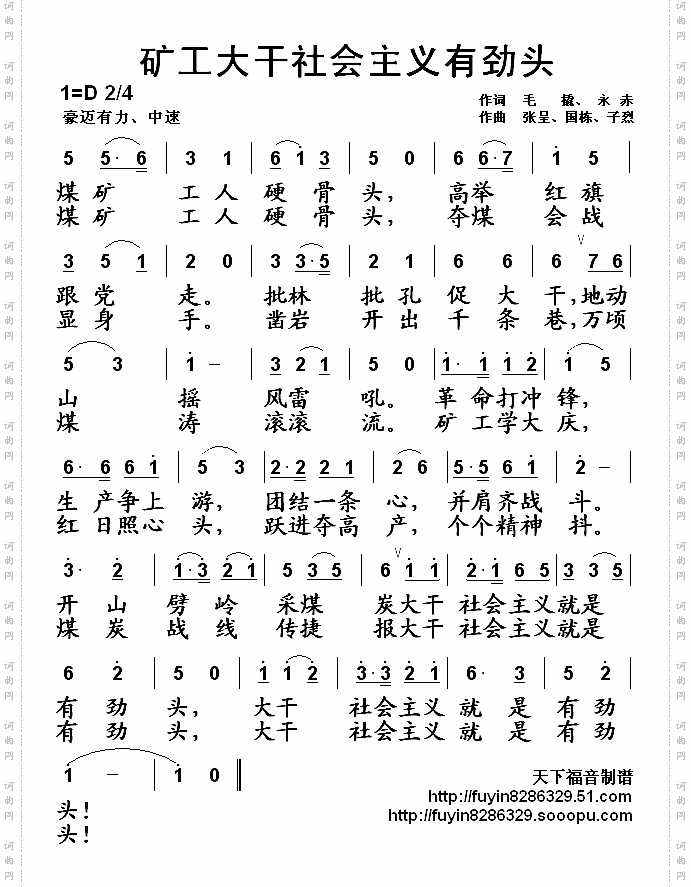 矿工大干社会主义有劲头
1=D 2/4
豪迈有力、中速
作词 毛 撬、永赤
作曲 张呈、国栋、子烈
5 5· 6 | 3 1 | 6 1 3 | 5 0 | 6 6·7 | 1 5 |
煤矿 工人 硬骨头, 高举 红旗
煤矿 工人 硬骨头, 夺煤 会战
3 5 1 | 2 0 | 3 3·5 | 2 1 | 6 6 | 6 7 6 |
跟党 走。 批林 批孔 促大干,地动
显身 手。 凿岩 开出 千条巷,万顷
5 3 | 1 – | 3 2 1 | 5 0 | 1· 1 1 2 | 1 5 |
山 摇 风雷 吼。 革命打冲锋,
煤 涛 滚滚 流。 矿工学大庆,
6· 6 6 1 | 5 3 | 2·2 2 1 | 2 6 | 5·5 6 1 | 2 – |
生产争上 游, 团结一条 心, 并肩齐战 斗。
红日照心 头, 跃进夺高 产, 个个精神 抖。
3· 2 | 1·3 2 1 | 5 3 5 | 6 1 1 | 2·1 6 5 | 5 3 5 |
开山 劈岭 采煤 炭大干 社会主义就是
煤炭 战线 传捷 报大干 社会主义就是
6 2 | 5 0 | 1 1 2 | 3·3 2 1 | 6· 3 | 5 2 |
有劲 头, 大干 社会主义 就是 有劲
有劲 头, 大干 社会主义 就是 有劲
1 – | 1 0 ‖
头!
头!
天下福音制谱
http://fuyin8286329.51.com
http://fuyin8286329.sooopu.com
词曲网